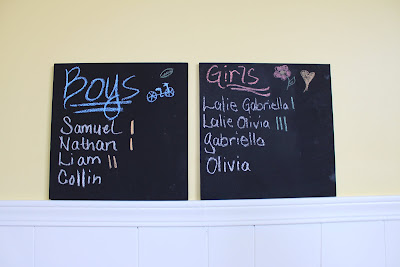 Boys
Samuel |
Nathan |
Liam ||
Collin
Girls
Lalie Gabriella |
Lalie Olivia |||
gabriella
Olivia